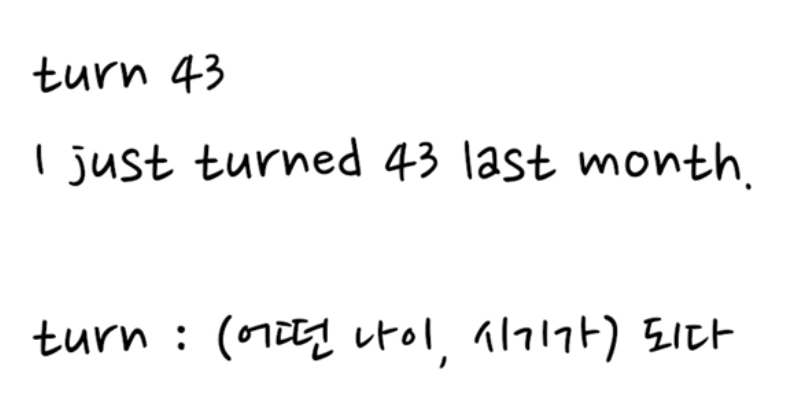 turn 43
I just turned 43 last month.
turn : (어떤 나이, 시기가) 되다